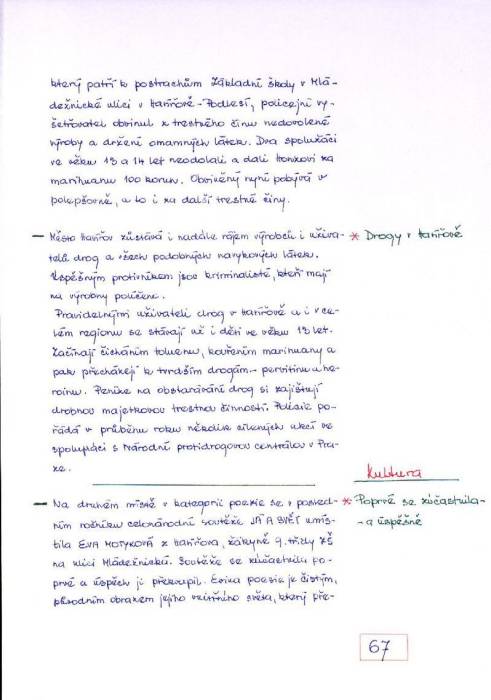 který patří k postrachům Základní školy v Mlá-
dežnické ulici v Havířově-Podlesí, policejní vy-
šetřovatel obvinul z trestného činu nedovolené
výroby a držení omamných látek. Dva spolužáci
ve věku 13 a 14 let neodolali a dali Honzovi za
marihuanu 100 korun. Obviněný nyní pobývá v
polepšovně, a to i za další trestné činy.
— Město Havířov zůstává i nadále rájem výrobců i uživa- * Drogy v Havířově
telů drog a všech podobných návykových látek.
Úspěšným protivníkem jsou kriminalisté, kteří mají
na výrobny políčeno.
Pravidelnými uživateli drog v Havířově a i v ce-
lém regionu se stávají už i děti ve věku 13 let.
Začínají čicháním toluenu, kouřením marihuany a
pak přecházejí k tvrdším drogám - pervitinu a he-
roinu. Peníze na obstarávání drog si zajišťují
drobnou majetkovou trestnou činností. Policie po-
řádá v průběhu roku několik cílených akcí ve
spolupráci s Národní protidrogovou centrálou v Pra-
ze.
Kultura
— Na druhém místě v kategorii poezie se v posled- * Poprvé se zúčastnila -
ním ročníku celonárodní soutěže JÁ A SVĚT umís- - a úspěšně
tila EVA MOTYKOVÁ z Havířova, žákyně 9. třídy ZŠ
na ulici Mládežnická. Soutěže se zúčastnila po-
prvé a úspěch ji překvapil. Evina poezie je čistým,
původním obrazem jejího vnitřního světa, který pře-
67